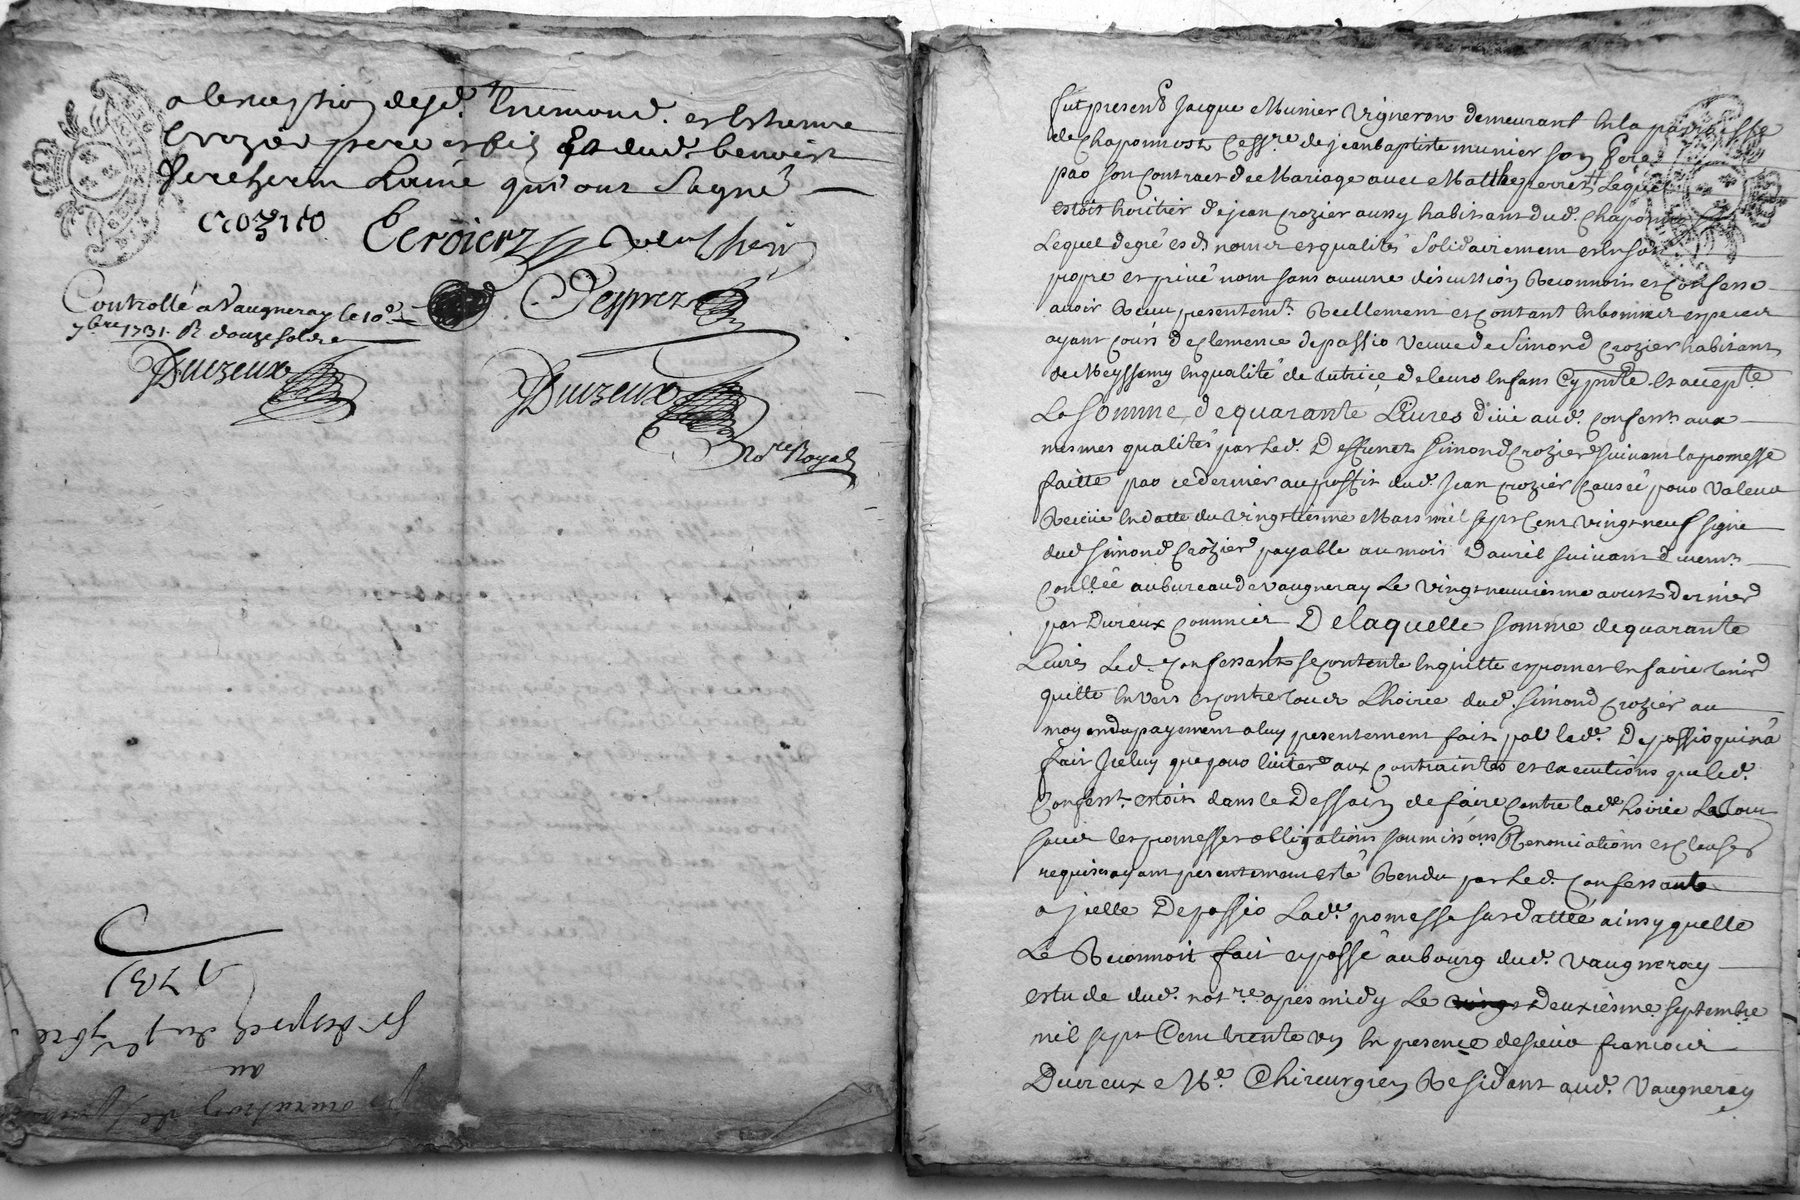 a lexception desd. Thiemond. et Estienne
Crozier pere et fils Et dud. benoist
Veretzerm Lainé qui ont Signé
crozier Cervierz
Deyprez
Controllé a Vaugneray le 10e
7bre 1731. R douze sols
Durzeux
Durzeux
No.re Royal
1731
au
fut present Jacque Munier Vigneron demeurant en la parroisse
de Chaponnost Cess.re de jean baptiste munier son frere
par son Contract de Mariage avec Mathe pierret Lequel
estoit heritier de jean Crozier aussy habitant dud. Chaponost
Lequel de gré esd. nom et qualités Solidairement et en son
propre et privé nom sans aucune discution Reconnoit et Confesse
avoir Receu presentem.t Reellement et Contant En bonnes especes
ayant Cours de Clemence depassio veuve de Simond Crozier habitant
de Meyssemy En qualité de tutrice de leurs Enfans Cy pnte Et accepte
La Somme de quarante Livres düe aud. Confess.t aux
mesmes qualités par led. Deffunct Simond Crozier suivant la promesse
faitte par ce dernier au proffit dud. Jean Crozier Causée pour Valeur
Receüe En datte du vingtiesme Mars mil sept Cent vingt neuf signé
dud simond Crozier payable au mois D'avril suivant Duem.t
Conll.ée au bureau de vaugneray Le vingt neuviesme aoust dernier
par Dureux Commier De laquelle somme de quarante
Livres Led. Confessant se contente En quitte et promet En faire tenir
quitte Envers et contre tous Lhoirie dud. simond Crozier au
moyen du payement a luy presentement fait par lad.e Depassio qui n'a
fait Jceluy que pour Eviter aux Contraintes et Executions que led.
Confess.t estoit dans le Dessain de faire Contre lad.e hoirie Le tout
sauf les promesses obligations soumissons Renonciations et Clauses
requises ayant presentement esté Rendu par led. Confessante
a jcelle Depassio Lad.e promesse susdattée ainsy quelle
Le Reconnoit fait et passé au bourg dud. Vaugneray
estude dud. not.re apres midy Le deuxiesme septembre
mil sept Cent trente un En presence de sieur francois
Dureux M.e Chirurgien Residant aud. Vaugneray